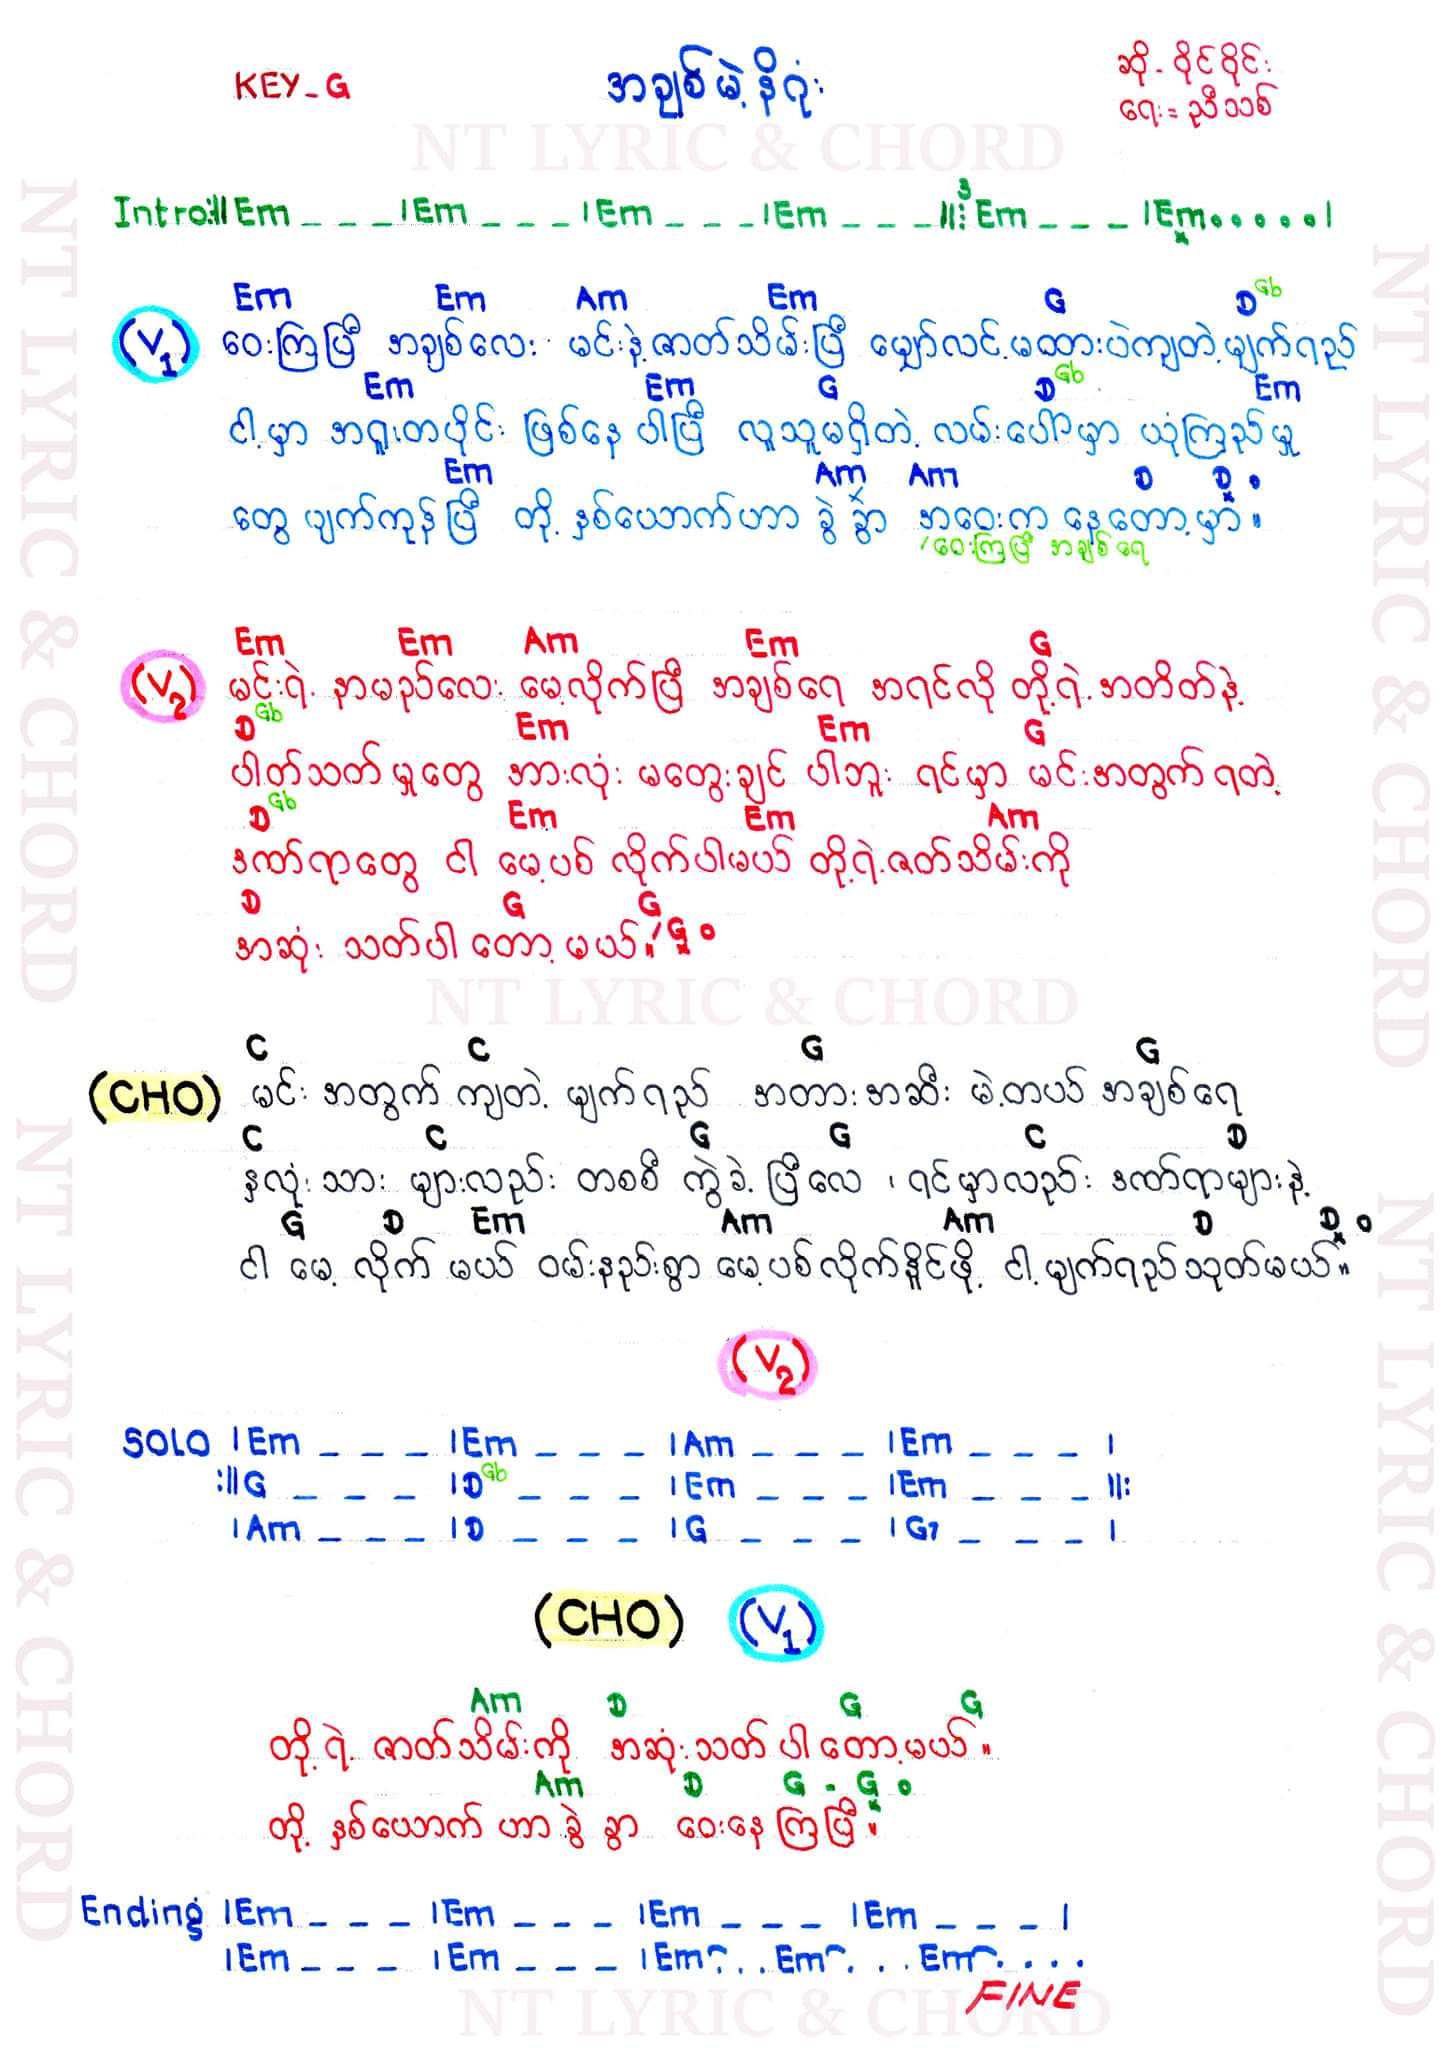 KEY - G
အချစ်မဲ့နိဂုံး
ဆို - ဝိုင်ဝိုင်း
ရေး = ညီသစ်
NT LYRIC & CHORD
Intro :|| Em _ _ _ | Em _ _ _ | Em _ _ _ | Em _ _ _ ||: 3 Em _ _ _ | Em . . . . . |
Em Em Am Em G D Gb
(V1) ဝေးကြပြီ အချစ်လေး မင်းနဲ့ဇာတ်သိမ်းပြီ မျှော်လင့်မထားပဲကျတဲ့မျက်ရည်
Em Em G D Gb Em
ငါ့မှာ အရူးတပိုင်း ဖြစ်နေ ပါပြီ လူသူမရှိတဲ့ လမ်းပေါ်မှာ ယုံကြည်မှု
Em Am Am D D .
တွေ ပျက်ကုန်ပြီ တို့ နှစ်ယောက်ဟာ ခွဲ ခွာ အဝေးက နေတော့မှာ။
/ ဝေးကြပြီ အချစ်ရေ
Em Em Am Em G
(V2) မင်းရဲ့ နာမည်လေး မေ့လိုက်ပြီ အချစ်ရေ အရင်လို တို့ရဲ့အတိတ်နဲ့
D Gb Em Em G
ပါတ်သတ်မှုတွေ အားလုံး မတွေးချင် ပါဘူး ရင်မှာ မင်းအတွက်ရတဲ့
D Gb Em Em Am
ဒဏ်ရာတွေ ငါ မေ့ပစ် လိုက်ပါမယ် တို့ရဲ့ဇတ်သိမ်းကို
D G G / G .
အဆုံး သတ်ပါ တော့ မယ်။
NT LYRIC & CHORD
C C G G
(CHO) မင်း အတွက် ကျတဲ့ မျက်ရည် အတားအဆီး မဲ့တယ် အချစ်ရေ
C C G G C D
နှလုံး သား များလည်း တစစီ ကွဲခဲ့ ပြီလေ ၊ ရင်မှာလည်း ဒဏ်ရာများနဲ့
G D Em Am Am D D .
ငါ မေ့ လိုက် မယ် ဝမ်းနည်းစွာ မေ့ပစ်လိုက်နိူင်ဖို့ ငါ့မျက်ရည်သုတ်မယ်။
(V2)
SOLO | Em _ _ _ | Em _ _ _ | Am _ _ _ | Em _ _ _ |
:|| G _ _ _ | D Gb _ _ _ | Em _ _ _ | Em _ _ _ ||:
| Am _ _ _ | D _ _ _ | G _ _ _ | G7 _ _ _ |
(CHO) (V1)
Am D G G
တို့ရဲ့ ဇာတ်သိမ်းကို အဆုံးသတ် ပါ တော့မယ်။
Am D G . G .
တို့ နှစ်ယောက် ဟာ ခွဲ ခွာ ဝေးနေ ကြပြီ။
Ending | Em _ _ _ | Em _ _ _ | Em _ _ _ | Em _ _ _ |
| Em _ _ _ | Em _ _ _ | Em . . . Em . . . Em . . . .
FINE
NT LYRIC & CHORD
NT LYRIC & CHORD
NT LYRIC & CHORD
NT LYRIC & CHORD
NT LYRIC & CHORD